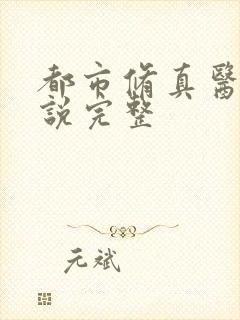 都市脩真醫
說完整
元斌